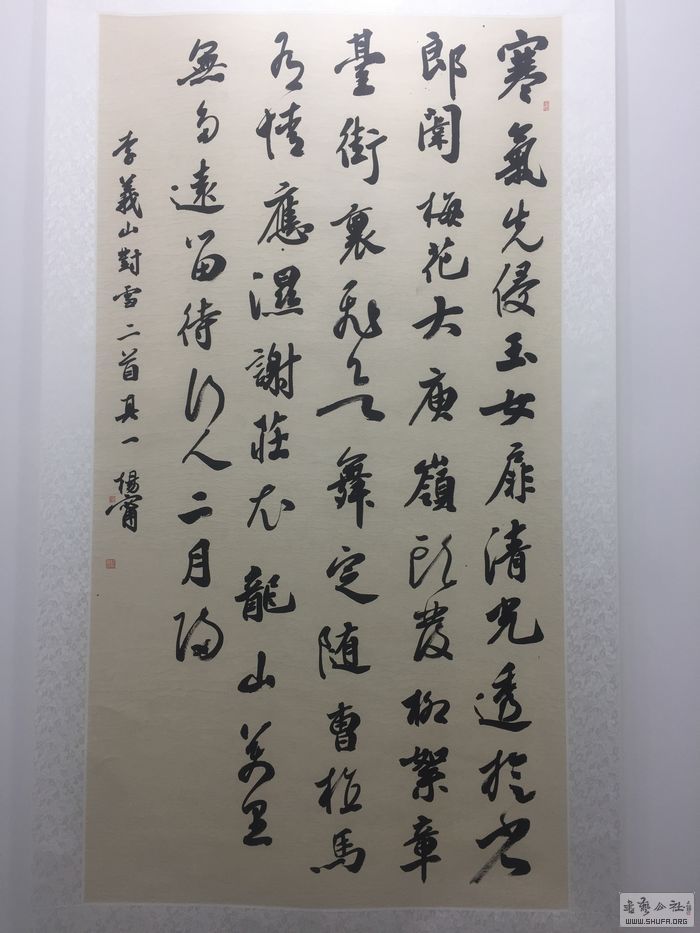 寒氣先侵玉女扉清光透旋省
郎闈梅花大庾嶺頭發柳絮章
臺街裏飛欲舞定随曹植馬
有情應濕謝莊衣龍山萬里
無多遠留待行人二月歸
李義山對雪二首其一 楊甯
WWW.SHUFA.ORG